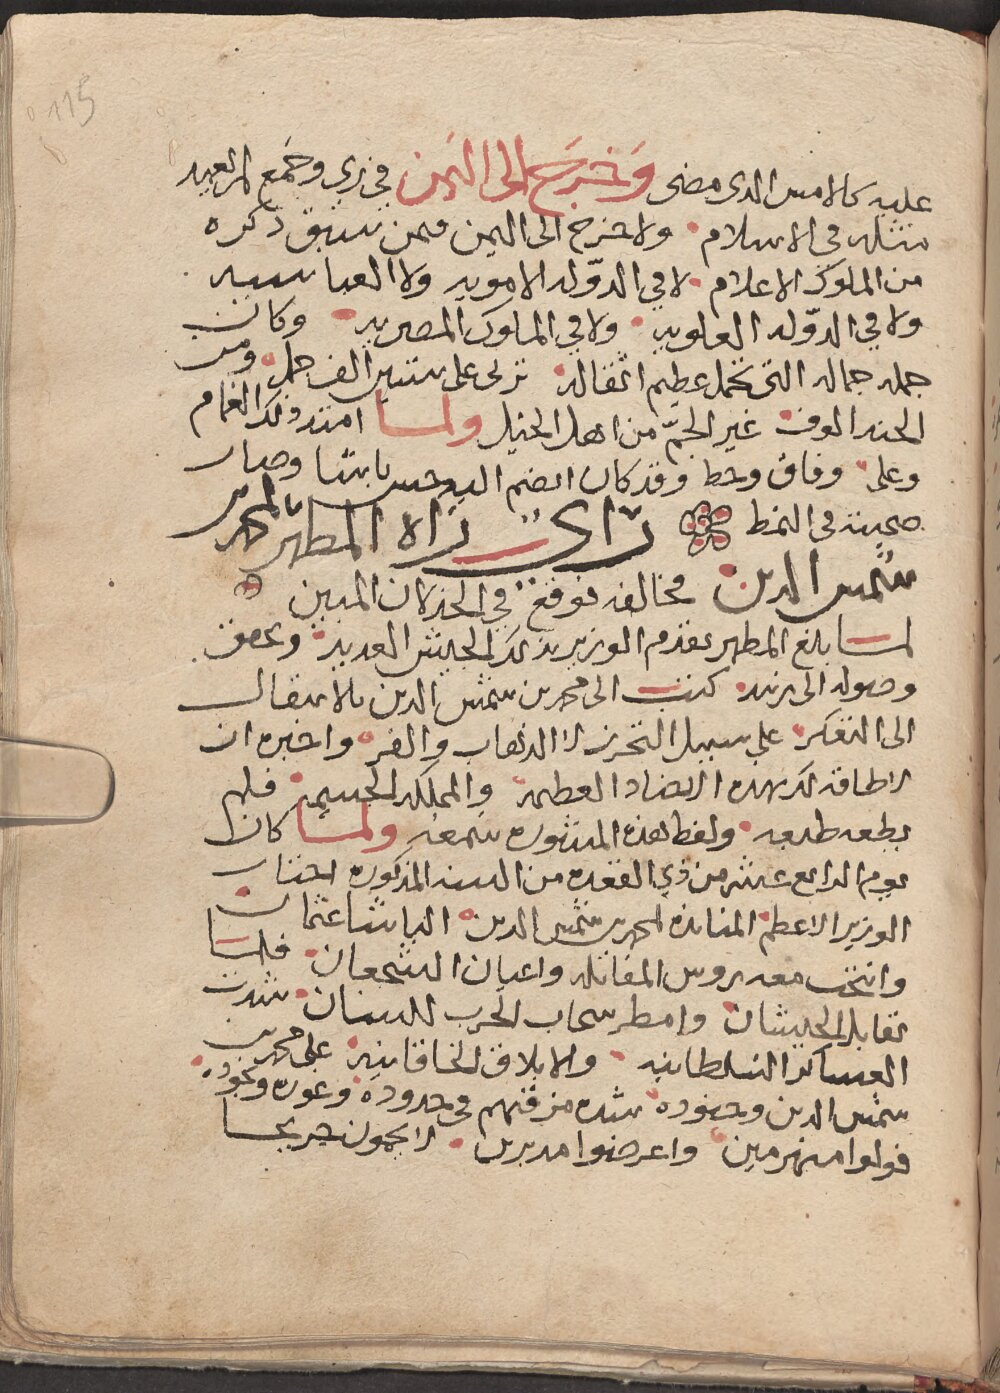 115
عليه كالامس الدى مضى وَخَرَجَ الى اليَمَن في زى وجَمع لم يعهد
مثله فى الاسلام ولا خرج الى اليمن فمن سبق ذكره
من الملوك الاعلام لا في الدّوله الامويه ولا العباسيه
ولا في الدّوله العلويه ولا في الملوك المصريه وكان
جمله جماله التى تحمل عظيم اثقاله تربى على ستين الف جمل ومن
الجند الوف غير الجمّ من اهل الخيل ولما امتد ذلك الغمام
وعلى وفاق وحط وقد كان انضم اليه حسن باشا وصار
صحبته فى النمط راى راه المطهر لمحمد بن
شمس الدين مخالفه فوقع في الخذلان المبين
لما بلغ المطهر تقدم الوزير بذلك الجيش العديد وتحقق
وصوله الى زبيد كتب الى محمد بن شمس الدين بالانتقال
الى التفكر على سبيل التحرز لا الذهاب والفر واخبره ان
لا طاقه لك بهذه العظمه والمملكه الجسيمه فلم
يطعه طبعه ولفظ هذه المشوره سمعه ولما كان
يوم الرابع عشر من ذي القعده من السنه المذكوره اختار
الوزير الاعظم لمحمد بن شمس الدين الباشا عثمان
وانتخب معه روس المقاتله واعيان الشجعان فلما
تقابل الجيشان وامطر سحاب الحرب شدت
العساكر السلطانيه والا يلاق الخاقانيه على محمد بن
شمس الدين وجنوده شده مزقتهم فى حدوده وغوره ونجوده
فولوا منهزمين واعرضوا مدبرين لا يحمون جريحا